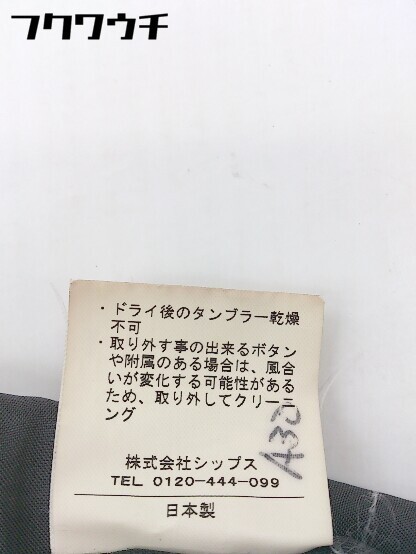 フクワウチ
・ドライ後のタンブラー乾燥
不可
・取り外す事の出来るボタン
や附属のある場合は、風合
いが変化する可能性がある
ため、取り外してクリーニ
ング
A30
株式会社シップス
TEL 0120-444-099
日本製